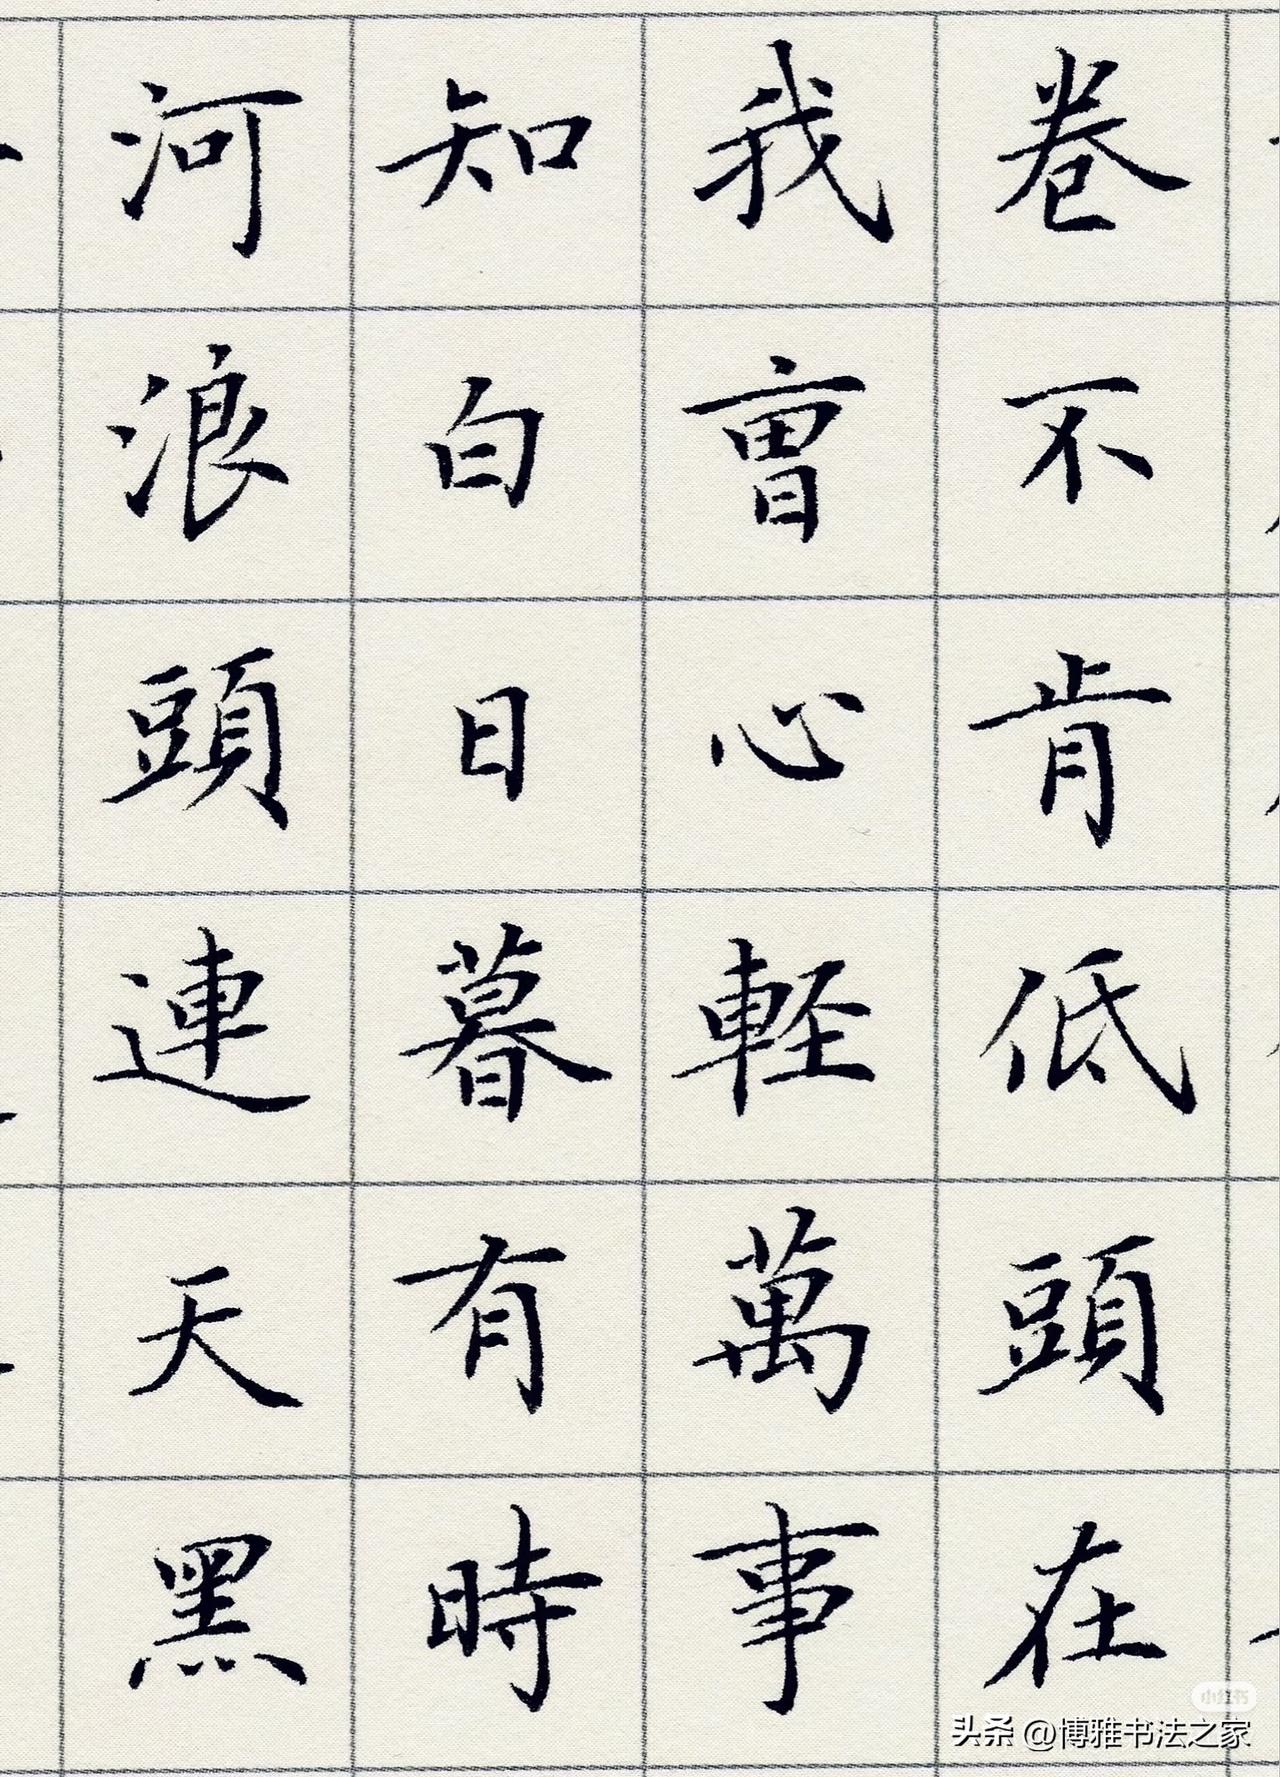 卷不肯低頭在
我曹心軽萬事
知白日暮有時
河浪頭連天黑
小红书
头条 @博雅书法之家